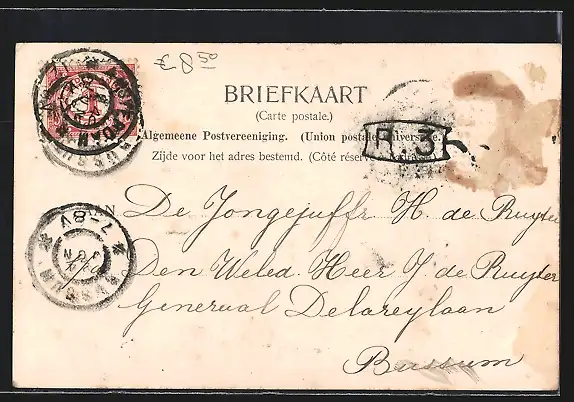 € 8 50
BRIEFKAART
(Carte postale.)
Algemeene Postvereeniging. (Union postale universelle.)
Zijde voor het adres bestemd. (Côté réservé
R. 3
AN De Jongejuffr H. de Ruyter
p/a Den Weled. Heer J. de Ruyter
Generaal Delareylaan
Bussum
BUSSUM
7-8V
JUN
BUSSUM